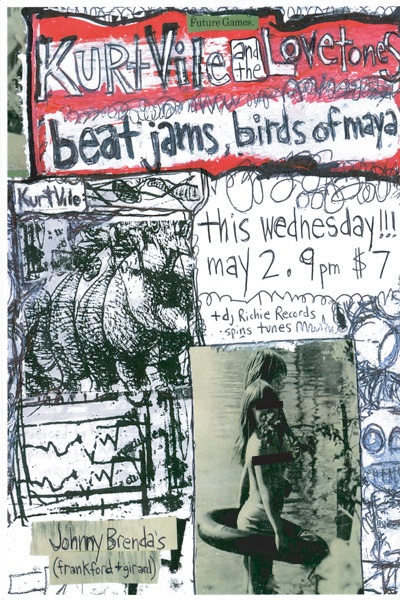 Future Games.
Kurt Vile and the Lovetones
beat jams, birds of maya
Kurt Vile
this wednesday!!!
may 2. 9pm $7
+ dj Richie Records
spins tunes
Johnny Brenda's
(frankford + girard)